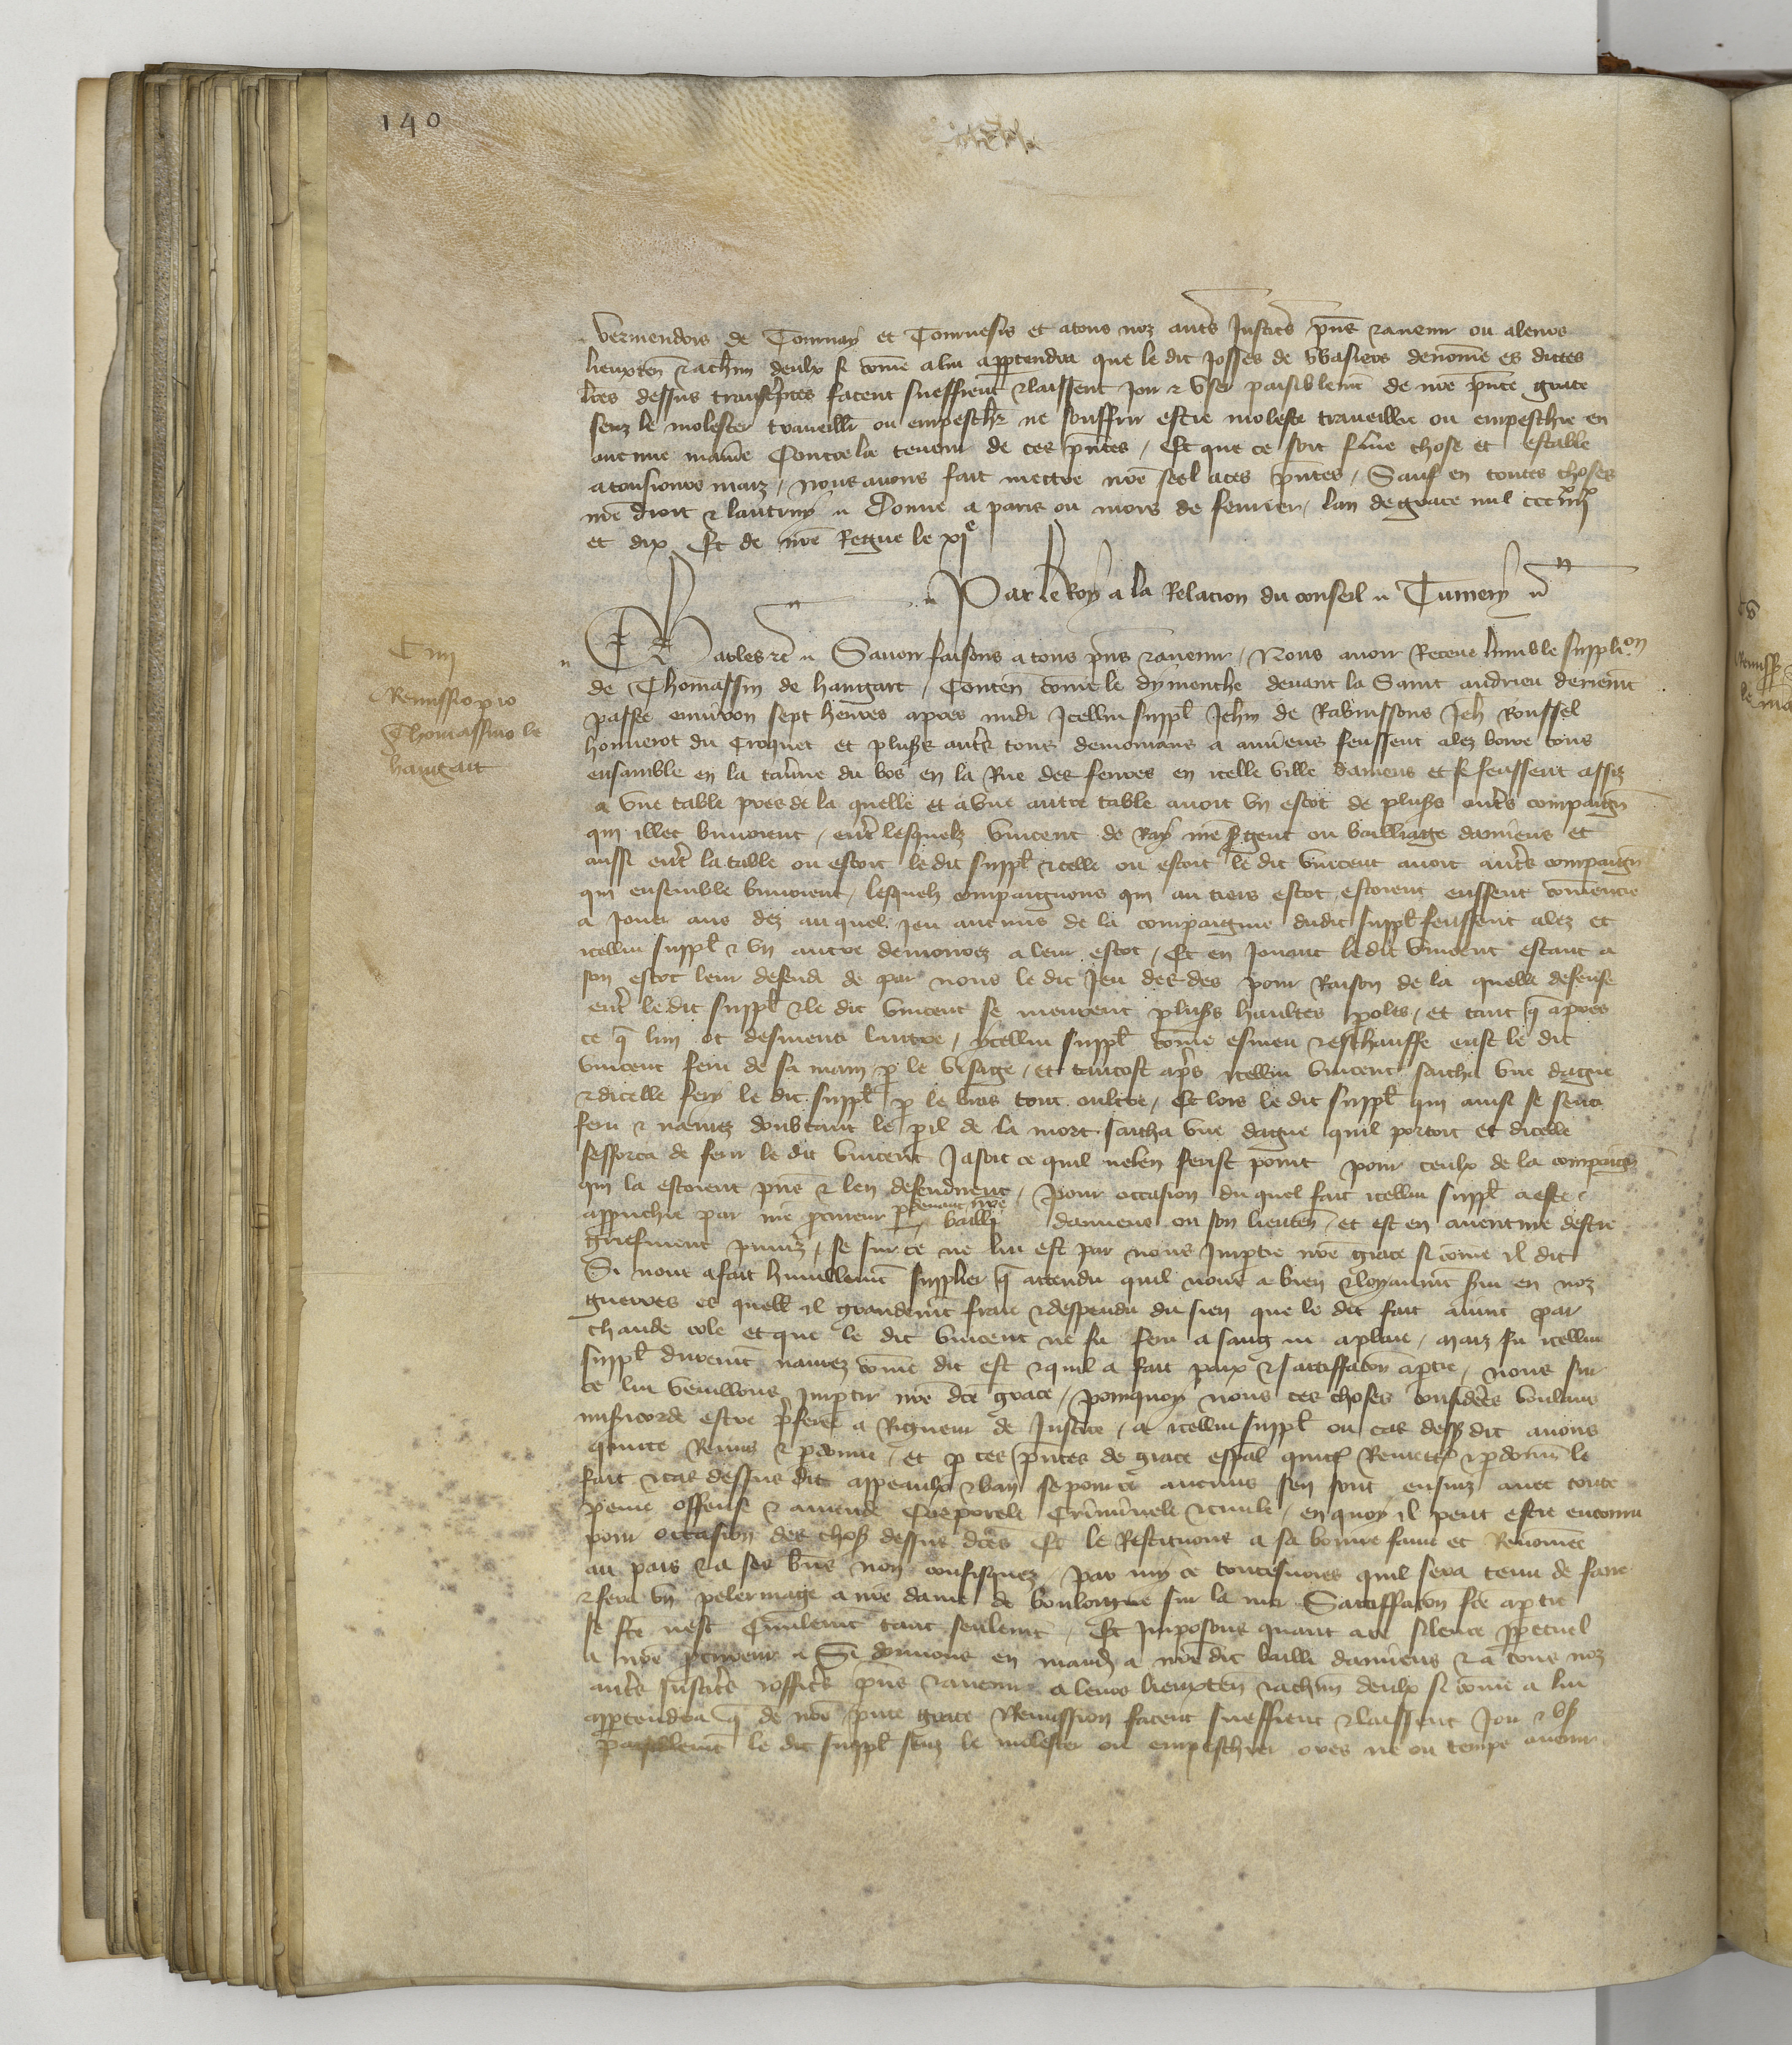 140
vermendois de Tournay et Tournesis et a tous noz autres Justiciers pñs & avenir ou a leurs
lieuxten̄ & a chũn deulx si cõme a lui appartendra que le dit Josses de Wasiers denõme es dictes
lrẽs dessus transcriptes facent sueffrent & laissent joir & user paisiblemẽt de nr̃e pñte grace
senz le molester traveillr ou empeschr ne souffrir estre moleste traveillie ou empeschie en
aucune manie Contre la teneur de ces pñtes / Et que ce soit ferme chose et estable
a tousiours maiz / nous avons fait mettre nr̃e seel a ces pñtes / Sauf en toutes choses
nr̃e droit & lautruy Donne a paris ou mois de fevrier / lan de grace mil ccc iiii xx
et dix Et de nr̃e Regne le xi e
Par le Roy a la Relacion du conseil Tumery
C iiii
Remissio pro
Thomassino de
hangart
Karles &c Savoir faisons a tous pñs & avenir / Nous avoir Receue lumble supplion
de Thomassin de hangart / Conten̄ cõme le dymenche devant la Saint andrieu derrenr̃t
passee environ sept heures apres midi Icellui suppl Jehñ de Rabuissons Jeh Roussel
honnerot du Croquet et plus autrs tous demorans a amiens feussent alez boire tous
ensamble en la taũne du bos en la Rue des fevres en icelle ville damiens et se feussent assiz
a une table pres de la quelle et a une autre table avoit un escot de plus autrs compaign̄
qui illec buvoient / entr lesquelz vincent de Ray nr̃e sgent ou bailliage damiens et
aussi entr la table ou estoit le dit suppl & celle ou estoit le dit vincent avoit autrs compaign̄
qui ensemble buvoient / lesquelz compaignons qui au tiers escot estoient eussent cõmencie
a Jouer aus dez au quel jeu aucuns de la compaignie dudit suppl feussent alez et
icellui suppl & un autre demourez a leur escot / Et en Jouant le dit vincent estant a
son escot leur defendi de par nous le dit Jeu des dez pour Raison de la quelle defense
entr le dit suppl & le dit vincent se meurent plus haultes poles / et tant q̃ apres
ce q̃ lun ot desmenti lautre / ycellui suppl cõme esmeu & eschauffe eust le dit
vincent feru de sa main p le visage / et tantost aprs icellui vincent saicha une dague
& dicelle fery le dit suppl p le bras tout oultre / Et lors le dit suppl qui ainsi se senti
feru & navrez doubtant le pil de la mort saicha une dague quil portoit et dicelle
sefforca de ferir le dit vincent Jasoit ce quil nelen ferist point pour ceulx de la compaign̄
qui la estoient pñs & len defendirent / Pour occasion du quel fait icellui suppl a este
approuchie par nr̃e pcureur pdevant nr̃e bailli damiens ou son lieuten̄ / et est en aventure destre
griefment puniz / se sur ce ne lui est par nous Imptie nr̃e grace si cõme il dit
Si nous a fait humblemẽt supplier q̃ attendu quil nous a bien & loyaumẽt svi en noz
guerres es quelles il grandemẽt fraie & despendu du sien que le dit fait avint par
chaude cole et que le dit vincent ne fu feru a sang ne a plaie / maiz fu icellui
suppl duremẽt navrez cõme dit est & quil a fait paix & sattiffacõn a ptie / nous sur
ce lui veuillons Imptir nr̃e dc̃e grace / Pourquoy nous ces choses considerees voulans
misericorde estre prferee a Rigueur de Justice / a icellui suppl ou cas dess dit avons
quicte Remis & pdonne / et p ces pñtes de grace espal quictos Remettos & pdonos le
fait & cas dessus dit appeaulx & ban se pour ce aucuns sen sont ensuiz avec toute
peine offense & amende Corporele Criminele & civile / en quoy il peut estre encouru
pour occasion des chos dessus dc̃es Et le Restituons a sa bonne fame et Renõmee
au pais & a ses biens non confisquez / Par my ce toutesvoies quil sera tenu de faire
& fera un pelerinage a nr̃e dame de Bouloingne sur la mer Satiffacõn fc̃e a ptie
se fc̃e nest Civilemẽt tant seulemẽt / Et Imposons quant a ce silence ppetuel
a nr̃e pcureur Si donnons en mand a nr̃e dit bailli damiens & a tous noz
autrs justicrs & officrs pñs & avenir a leurs lieuxten̄ & a chũn deulx si cõme a lui
apptendra q̃ de nr̃e pñte grace & Remission facent sueffrent & laissent Joir & us
paisiblemẽt le dit suppl senz le molester ou empeschier ores ne ou temps avenir